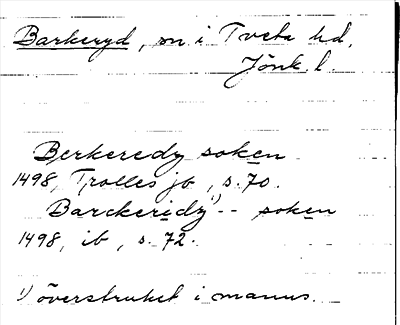 Barkeryd, sn i Tveta hd,
Jönk. l.
Berkeredy soken
1498, Trolles jb, s. 70.
Barckeridy¹⁾ -- soken
1498, ib, s. 72.
¹⁾ överstruket i manus.